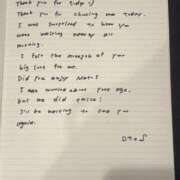 Thank you for today :)
Thank you for choosing me today.
I was surprised to hear you
were waiting nearby all
morning.
I felt the strength of your
big love for me.
Did you enjoy Meet?
I was worried about your age,
but we did quite!
I'll be waiting to see you
again.